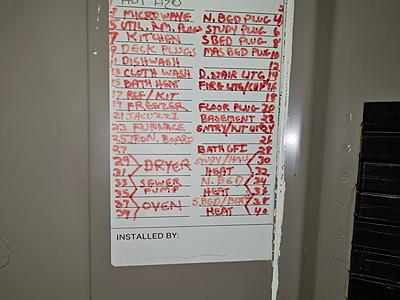 HOT H20
3 MICROWAVE N. BED PLUG 4
5 UTIL. RM. PLUGS STUDY PLUG 6
7 KITCHEN S BED PLUG 8
9 DECK PLUGS MAS BED PLUG 10
11 DISHWASH 12
13 CLOTH WASH D. STAIR LTG 14
15 BATH HEAT FIRE LTG/ 16
17 REF/KIT 18
19 FREEZER FLOOR PLUG 20
21 JACUZZI BASEMENT 22
23 FURNACE ENTRY/KIT 24
25 IRON. BOARD 26
27 BATH GFI 28
29 DRYER STUDY/HALL 30
31 HEAT 32
33 SEWER N. BED 34
35 PUMP HEAT 36
37 OVEN S BED/BATH 38
39 HEAT 40
INSTALLED BY: